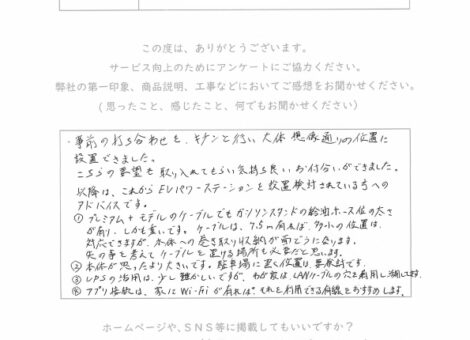 この度は、ありがとうございます。
サービス向上のためにアンケートにご協力ください。
弊社の第一印象、商品説明、工事などにおいてご感想をお聞かせください。
(思ったこと、感じたこと、何でもお聞かせください)
・事前の打ち合わせも、キチンと行い 大体想像通りの位置に
設置できました。
こちらの要望も取り入れてもらい気持ち良いお付合いができました。
以降は、これから EVパワーステーションを設置検討されている方への
アドバイスです。
①プレミアム+モデルのケーブルでもガソリンスタンドの給油ホース位の太さ
が有り、しかも重いです。ケーブルは、7.5m有れば、多少の位置は
対応できますが、本体への巻き取り収納が面どうになります。
先の事を考えてケーブルを置ける場所も必要だと思います。
②本体が思ったより大きいです。駐車場に置く位置は要検討です。
③ の活用は、少し難かしいですが、わが家は、LANケーブルの穴を利用し
④アプリ接続は、家にWi-Fiが有れば、それを利用できる有線をおすすめします。
ホームページや、SNS等に掲載してもいいですか？